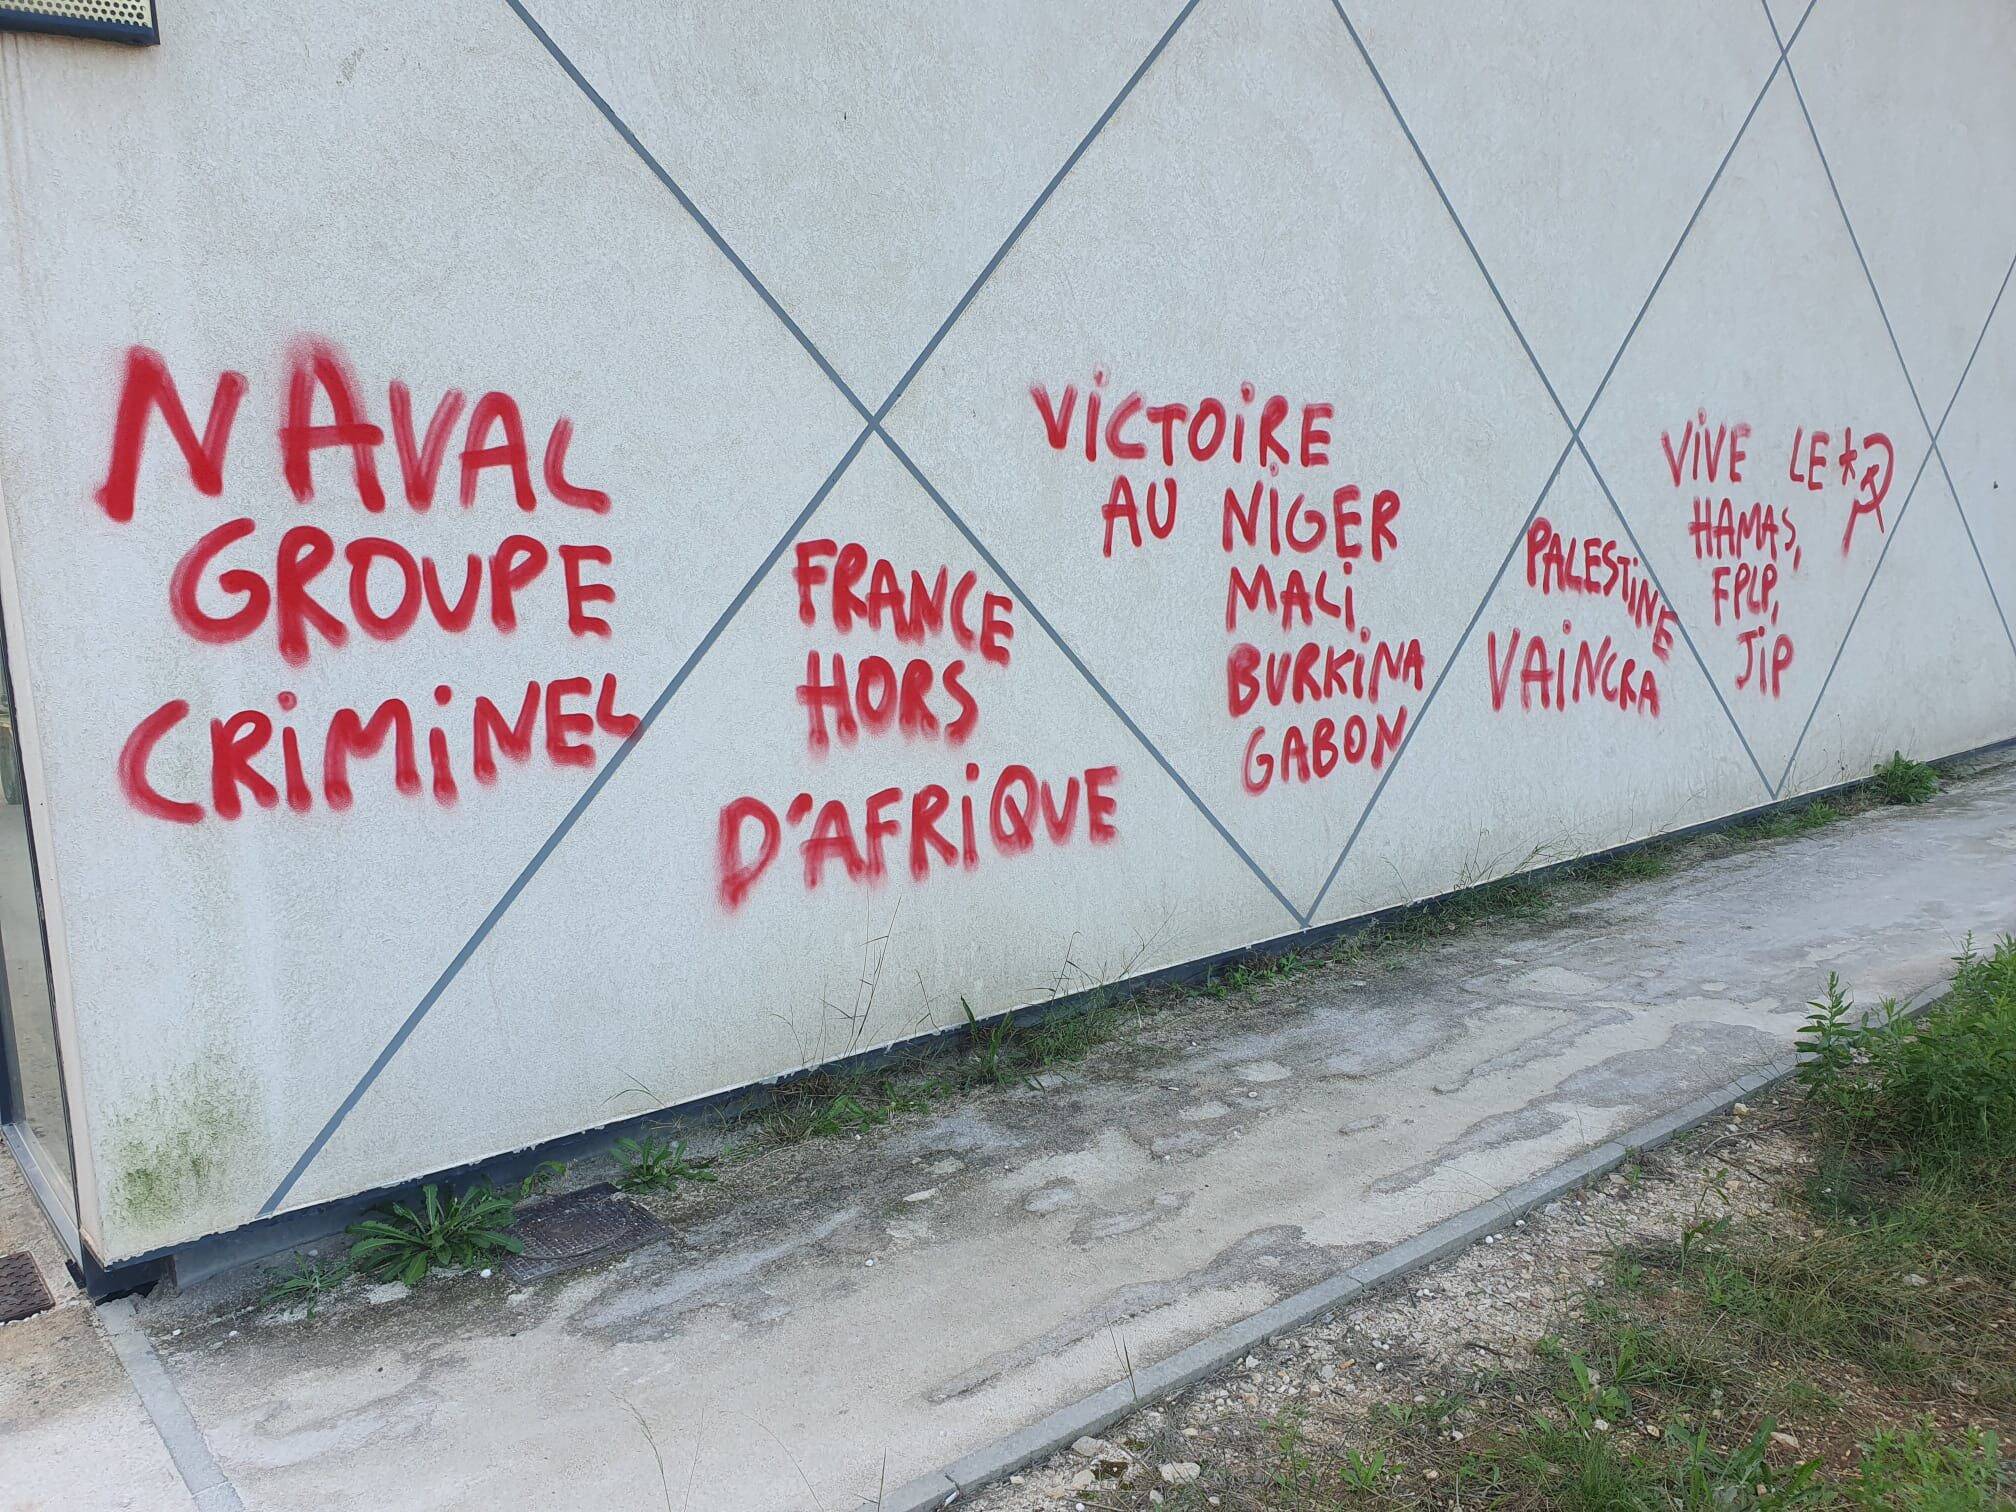 NAVAL
GROUPE
CRIMINEL
FRANCE
HORS
D'AFRIQUE
VICTOIRE
AU NIGER
MALI
BURKINA
GABON
PALESTINE
VAINCRA
VIVE LE
HAMAS,
FPLP,
JIP